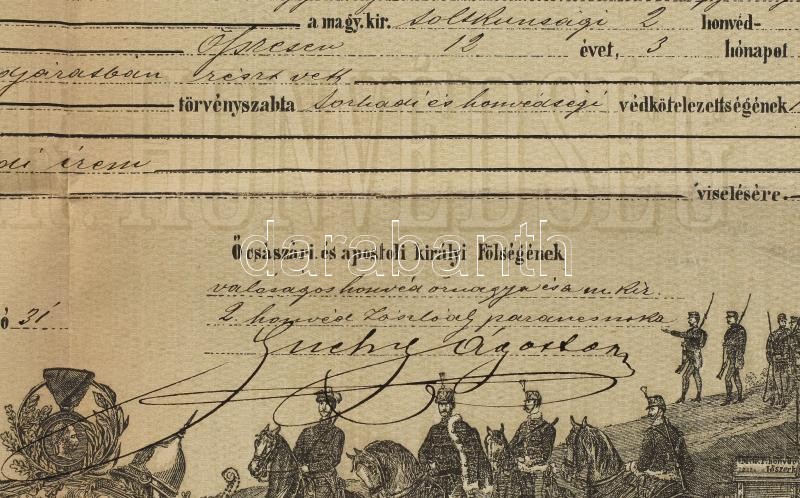 a magy. kir. Soltkunsági 2 honvéd-
Összesen 12 évet, 3 hónapot
részt vett
törvényszabta sorhadi és honvédségi védkötelezettségének
di érem
viselésére
HONVÉDSÉG
Ő császári és apostoli királyi Fölségének
darabanth
valóságos honvéd őrnagya és a m. kir.
2. honvéd zászlóalj parancsnoka
ó 31
Ágoston